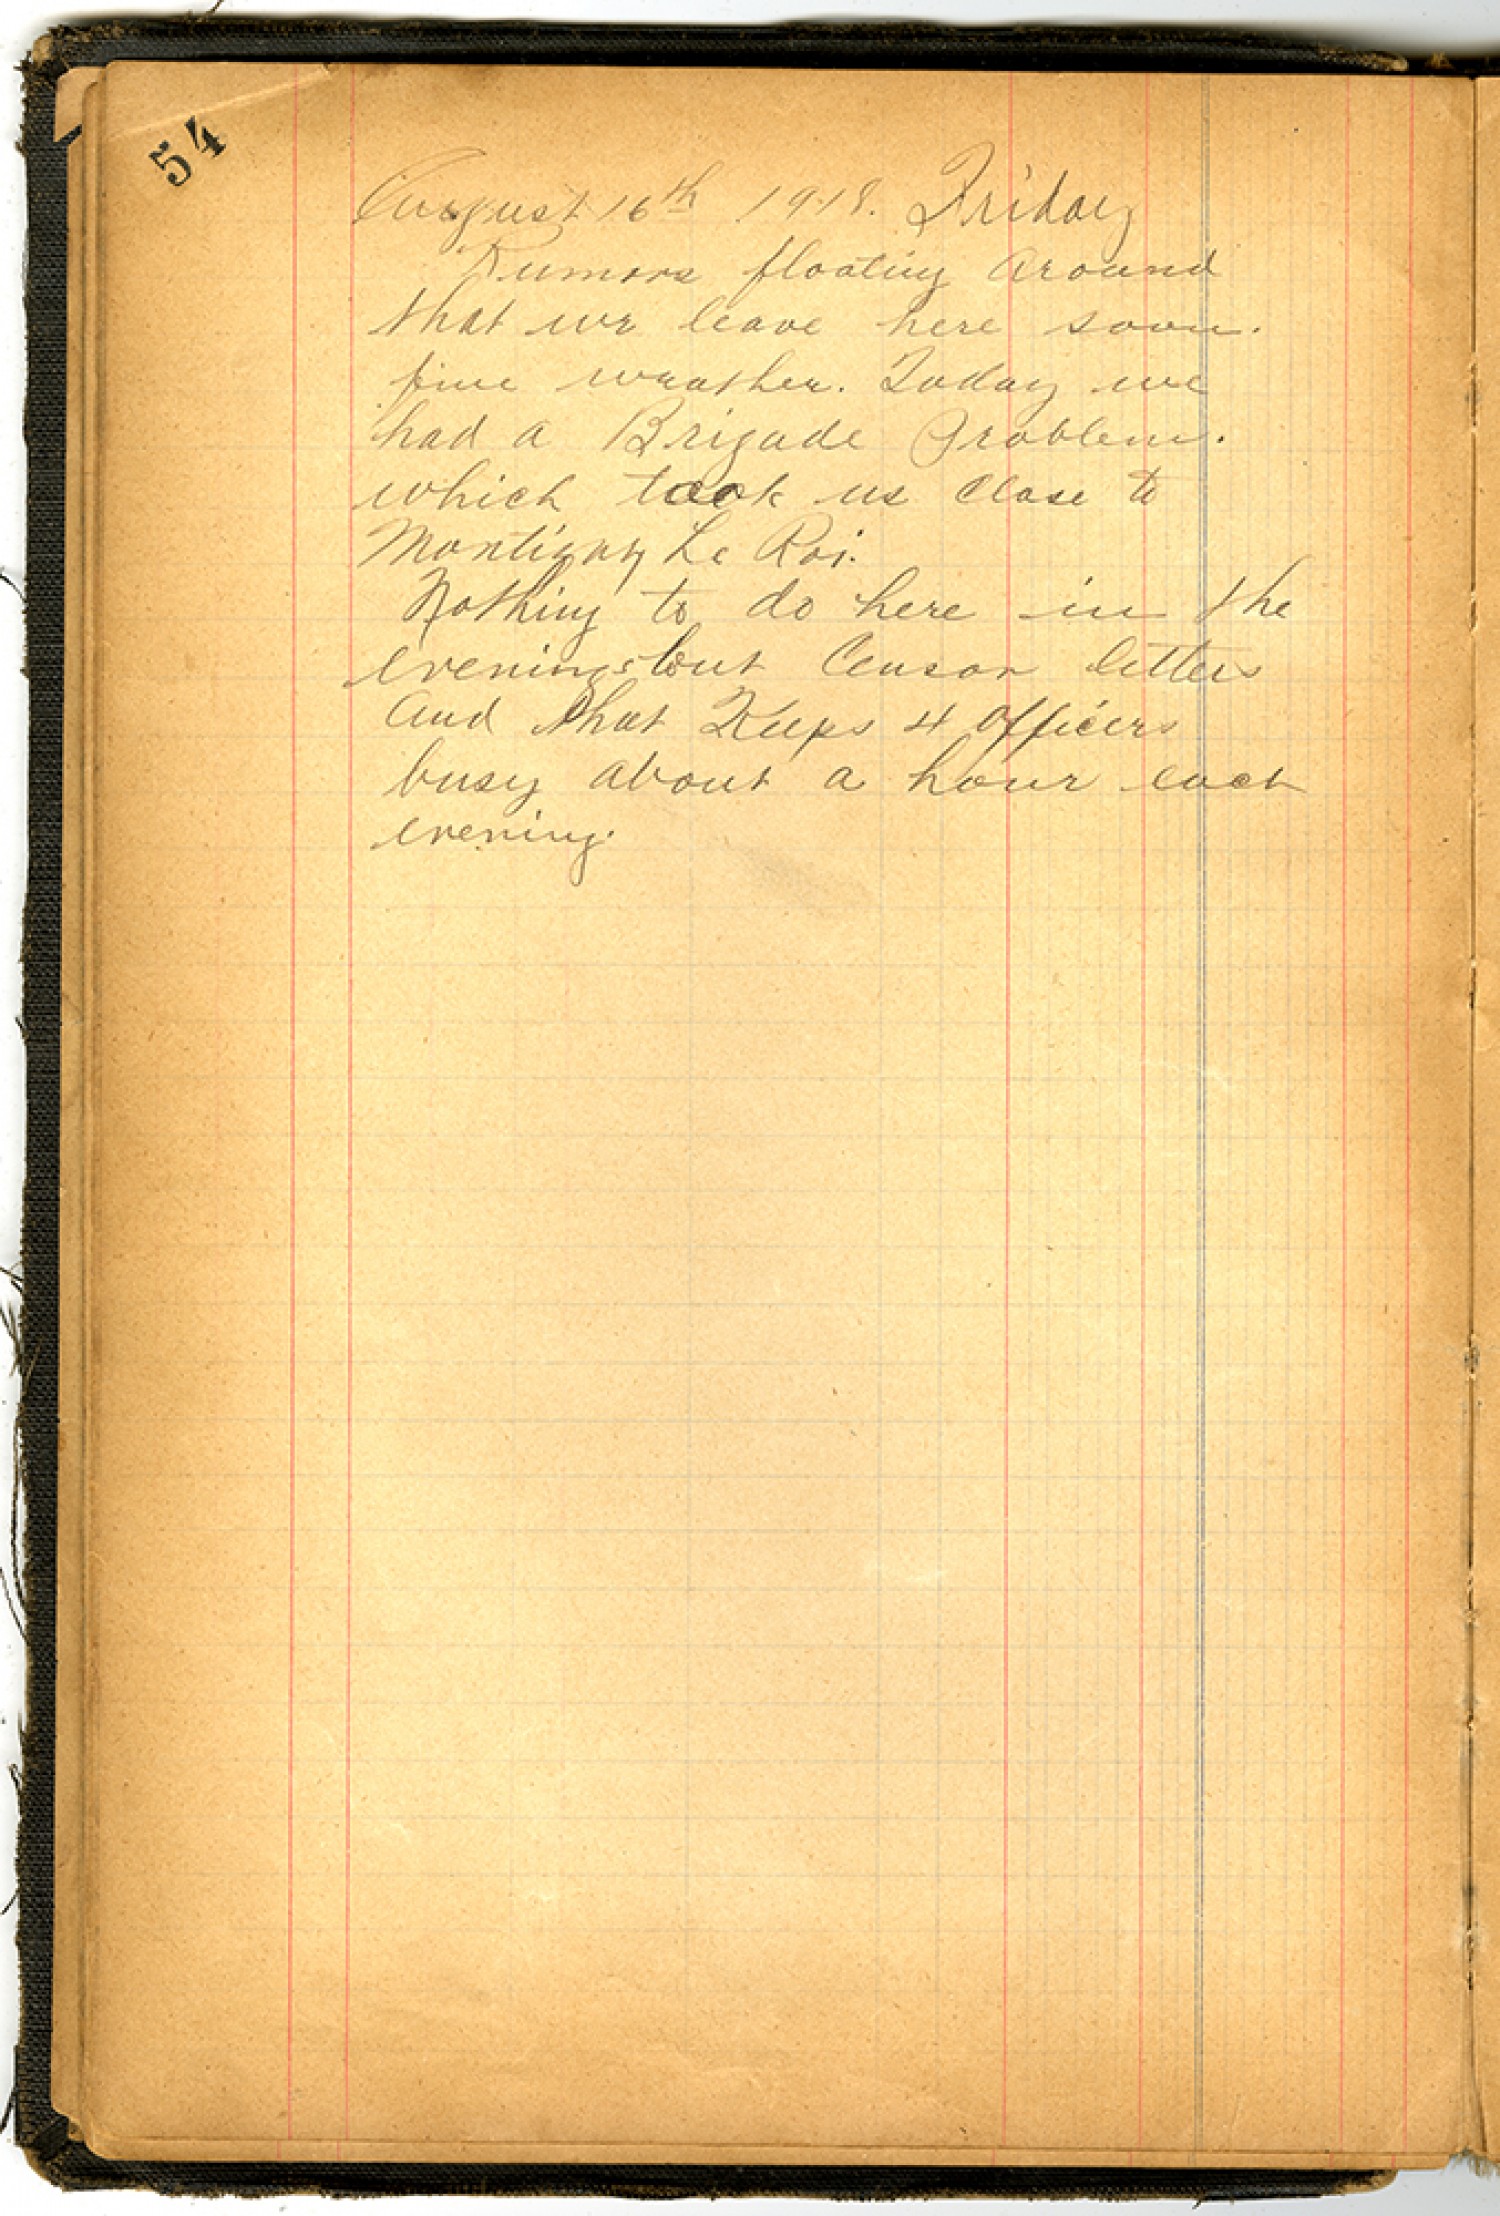 54
August 16th 1918. Friday
Rumors floating around
that we leave here soon.
fine weather. Today we
had a Brigade Problem.
which took us close to
Montigny Le Roi.
Nothing to do here in the
evenings but Censor letters
and that Keeps 4 officers
busy about a hour each
evening.